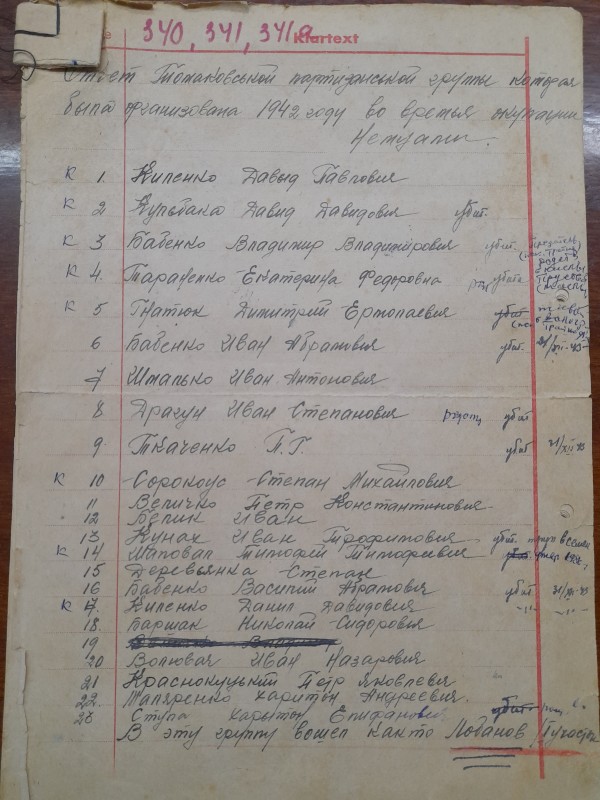 340, 341, 341а
Klartext
Отчет Томаковськой партизанськой группы которая
была организована 1942 году во время окупации
к 1. Кипенко Давыд Павловия
к 2 Кульбака Давид Давидовия убит.
к 3 Бабенко Владимир Владимировия убит.
к 4. Тараненко Екатерина Федоровна убита
к 5 Гнатюк Димитрий Ермолаевия убит
6 Бабенко Иван Абрамовия убит. 21/XII-43
7 Шмалько Иван Антоновия
8 Драгун Иван Степанович убит
9 Ткаченко П. Г. убит 21/XII 43
к 10 Сорокоус Степан Михайловия
11 Величко Петр Константиновия
12 Белик Иван
13 Кунах Иван Трофимовия убит.
к 14 Шаповал Тимофей Тимофеевия убит умер
15 Деревьянка Степан
16 Бабенко Василий Абрамовия убит 21/XII-43
к 17. Кипенко Данил Давидовия -"-
18. Баршак Николай Сидоровия
19
20 Воловая Иван Назаровия
21 Краснокуцький Петр Яковлевия
22. Маляренко Харитон Андреевия.
23 Ступа Харытон Епифанович убит
В эту группу вошел как то Лобанов